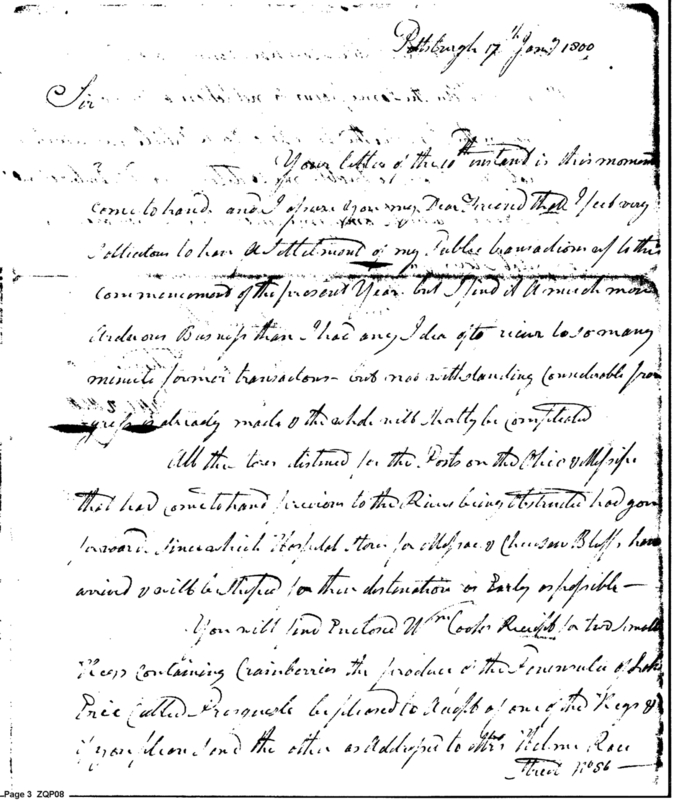 Pittsburgh 17th Jany 1800
Sir
Your letter of the 10th instand is this moment
come to hand and I assure you my Dear Friend that I feel very
Sollicitous to have a Settelment of my Public transactions up to the
commencement of the present Year but I find it a much more
Arduous Business than I had any Idea of to recur to so many
minute former transactions - but not withstanding Considerable pro
gress is already made & the whole will shortly be compleated
All the Stores distined for the Posts on the Ohio & Missisipe
that had come to hand previous to the River being Obstructed had gon
forward Since which Hospital Stores for Massac & Chicasaw Bluffs have
arrived & will be shiped for their destination as Early as possible —
You will find Enclosed Wm Cooks Receipt for two small
Kegs containing Crainberries the produce of the Peninsula of Lake
Erie Called Presquesle be pleased to Accept of one of the Kegs &
if you please send the other as Addressed to Mrs Race
Street No 86 —
Page 3 ZQP08